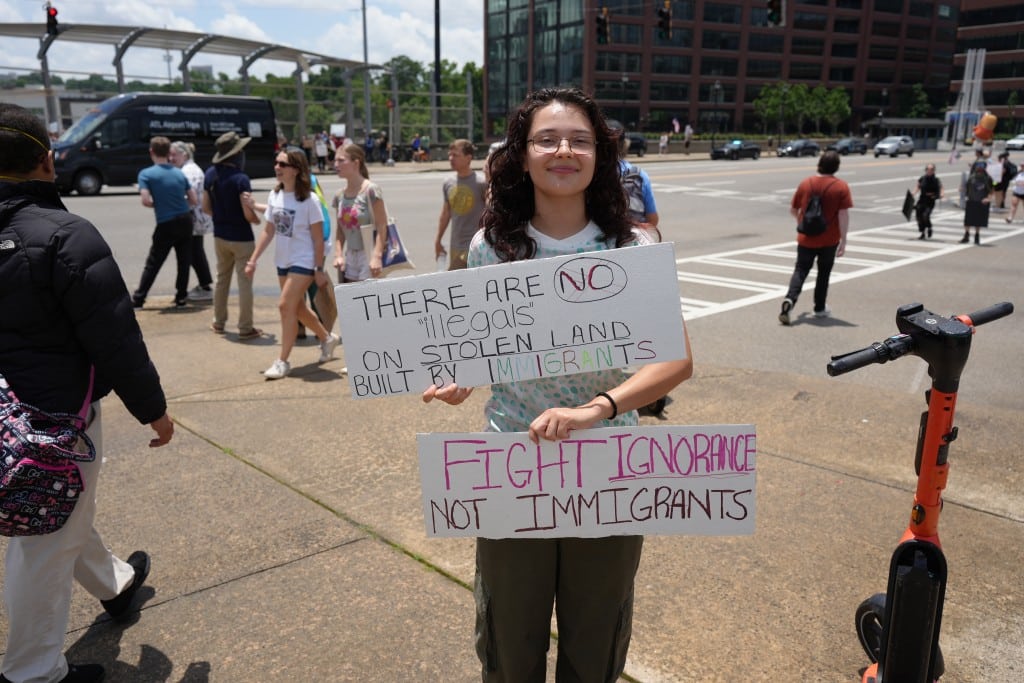 THERE ARE NO
"illegals"
ON STOLEN LAND
BUILT BY IMMIGRANTS
FIGHT IGNORANCE
NOT IMMIGRANTS
ATL Airport Trips